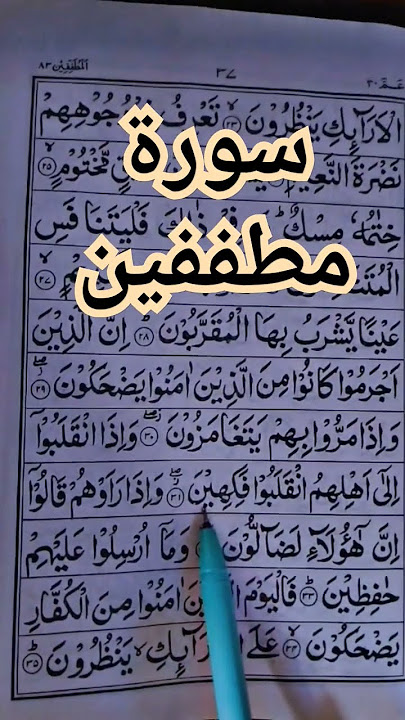 عَمَّ ٣٠ ٣٧ اَلْمُطَفِّفِيْن ٨٣
سورة
مطففين
الْاَرَآئِكِ يَنْظُرُوْنَ ۙ﴿۲۳﴾ تَعْرِفُ وُجُوْهِهِمْ
نَضْرَةَ النَّعِيْمِ مَّخْتُوْمٍ ۙ﴿۲۵﴾
خِتٰمُهٗ مِسْكٌ ؕ فَلْيَتَنَافَسِ
﴿۲۷﴾
عَيْنًا يَّشْرَبُ بِهَا الْمُقَرَّبُوْنَ ؕ﴿۲۸﴾ اِنَّ الَّذِيْنَ
اَجْرَمُوْا كَانُوْا مِنَ الَّذِيْنَ اٰمَنُوْا يَضْحَكُوْنَ ﴿۲۹﴾
وَاِذَا مَرُّوْا بِهِمْ يَتَغَامَزُوْنَ ﴿۳۰﴾ وَاِذَا انْقَلَبُوْٓا
اِلٰٓى اَهْلِهِمُ انْقَلَبُوْا فَكِهِيْنَ ﴿۳۱﴾ وَاِذَا رَاَوْهُمْ قَالُوْٓا
اِنَّ هٰٓؤُلَآءِ لَضَآلُّوْنَ وَمَآ اُرْسِلُوْا عَلَيْهِمْ
حٰفِظِيْنَ ؕ﴿۳۳﴾ فَالْيَوْمَ اٰمَنُوْا مِنَ الْكُفَّارِ
يَضْحَكُوْنَ ۙ﴿۳۴﴾ عَلَى يَنْظُرُوْنَ ؕ﴿۳۵﴾